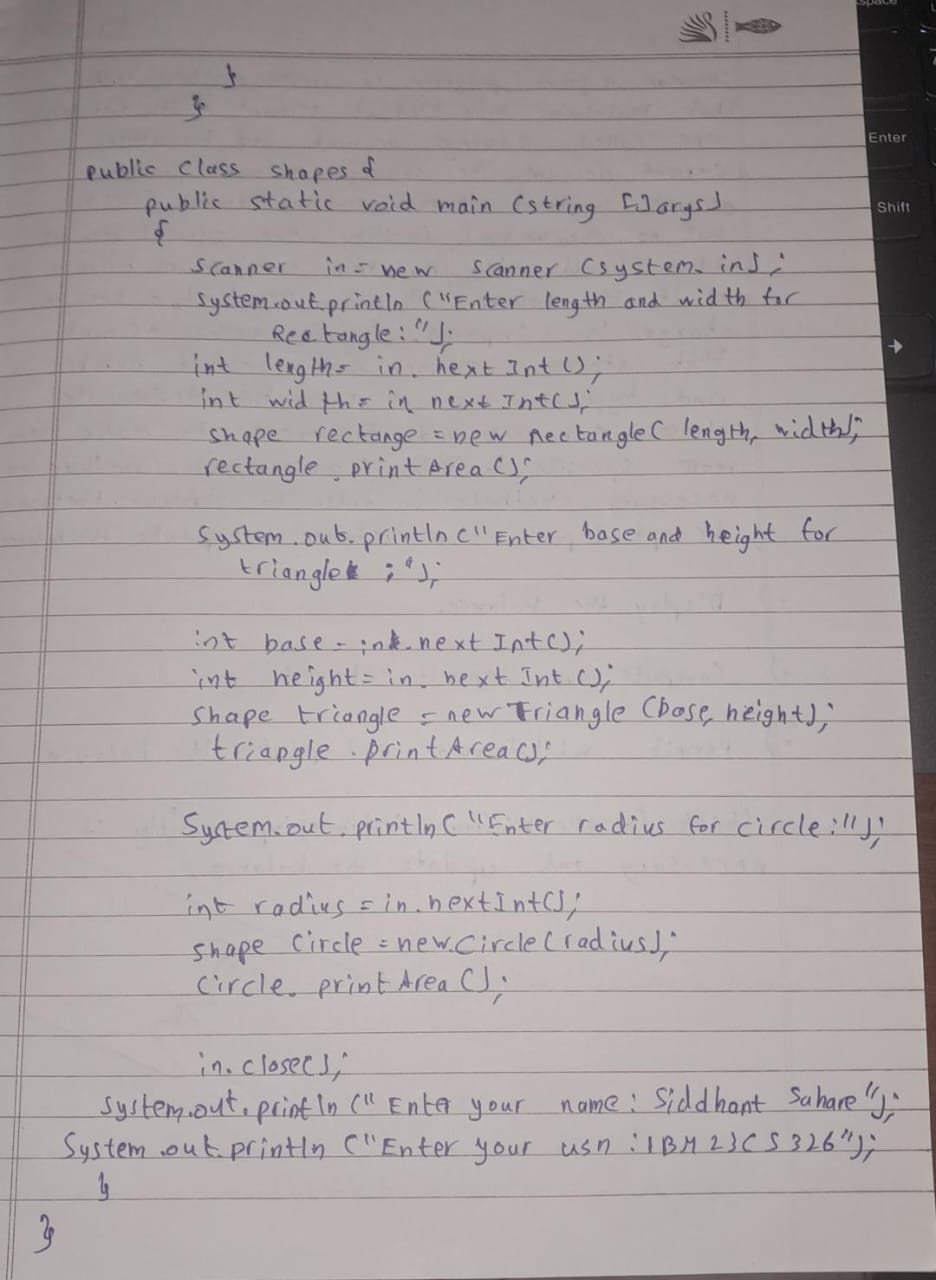 }
}
public class shapes {
public static void main (string []args)
{
scanner in = new scanner (system.in);
system.out.println ("Enter length and width for
Rectangle:");
int length = in.nextInt();
int width = in next Int();
shape rectange = new Rectangle( length, width);
rectangle.printArea();
system.out.println("Enter base and height for
triangle ;");
int base = in.nextInt();
int height = in.nextInt();
shape triangle = new Triangle (base, height);
triangle.printArea();
System.out.println("Enter radius for circle:");
int radius = in.nextInt();
shape Circle = new.Circle(radius);
Circle.printArea();
in.close();
system.out.println(" Enter your name: Siddhant Sahare");
System.out.println ("Enter your usn :1BM23CS326");
}
}
Enter
Shift